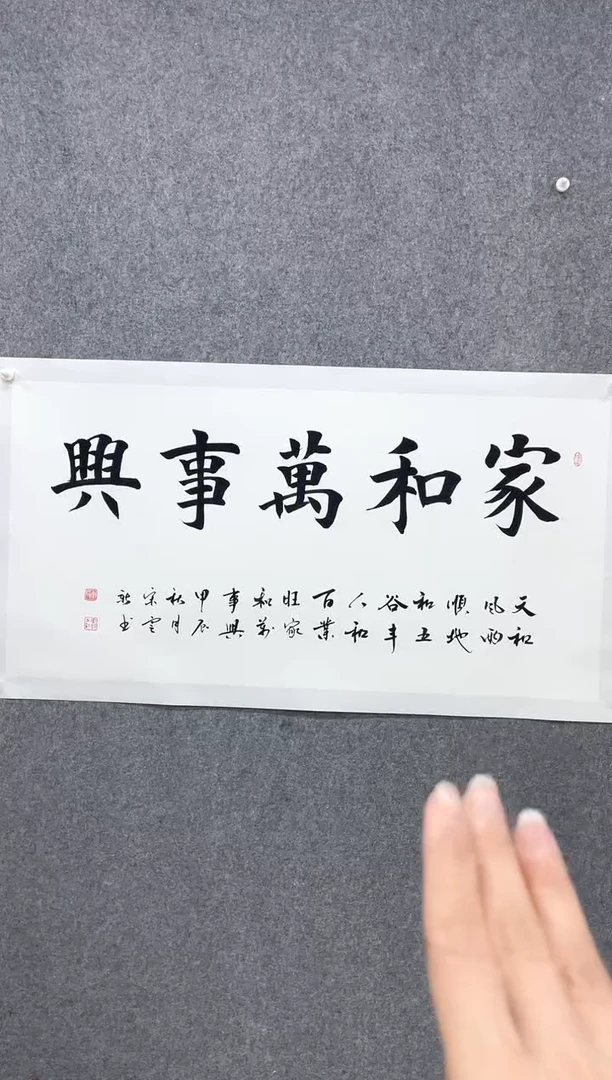 家和萬事興
天和
风雨
順地
和五
谷丰
人和
百業
旺家
和萬
事興
甲辰
秋月
宋雲
书